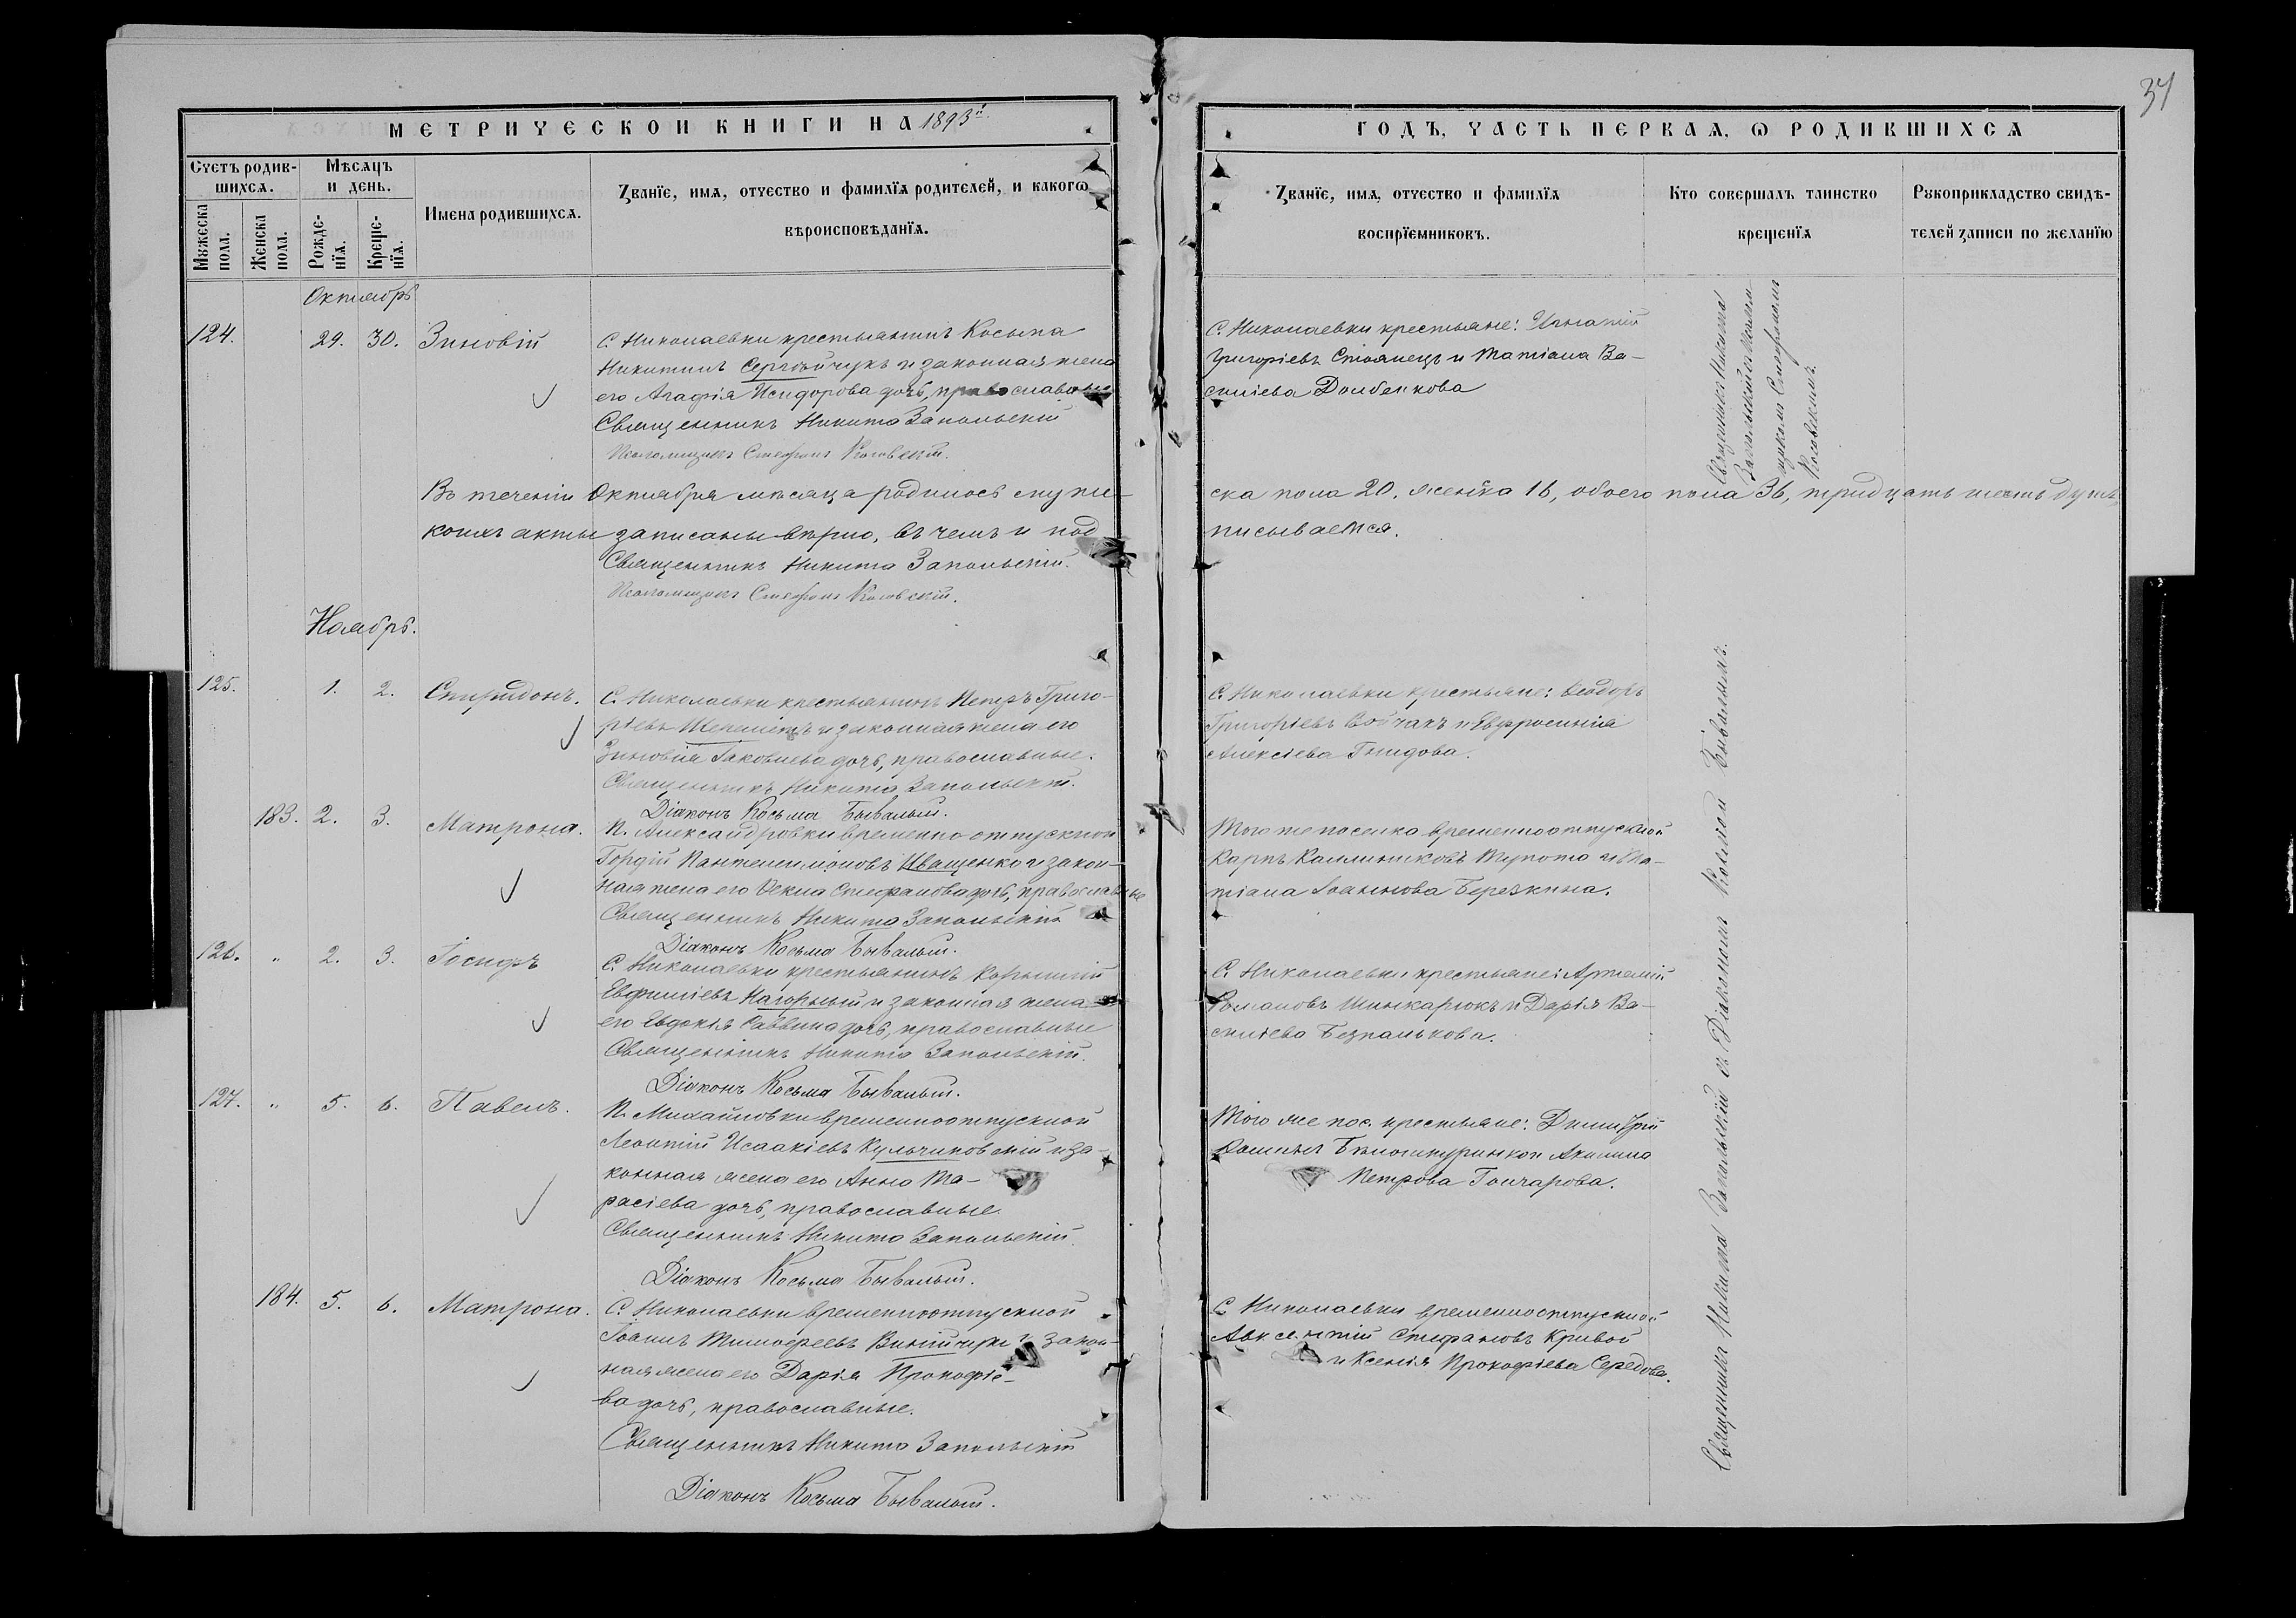 34
МЕТРИЧЕСКОЙ КНИГИ НА 1893й
ГОДЪ, ЧАСТЬ ПЕРВАЯ, Ѡ РОДИВШИХСЯ
Счетъ родив-
шихся.
Мѣсяцъ
и день.
Имена родившихся.
Званїе, имя, отчество и фамилїя родителей, и какогѡ
вѣроисповѣданїя.
Мꙋжеска
пола.
Женска
пола.
Рожде-
нїя.
Креще-
нїя.
Званїе, имя, отчество и фамилїя
воспрїемниковъ.
Кто совершалъ таинство
крещенїя
Рꙋкоприкладство свидѣ-
телей записи по желанїю
Октябрь
124. 29. 30. Зиновій
С. Николаевки крестьянинъ Косьма
Никитинъ Сергѣйчукъ и законная жена
его Агафія Исидорова дочь, православные
Священникъ Никита Запольскій
Псаломщикъ Стефанъ Косовскій.
С. Николаевки крестьяне: Игнатій
Григоріевъ Стоянецъ и Татіана Ва-
силіева Долбенкова
Священникъ Никита
Запольскій съ псалом-
щикомъ Стефаномъ
Косовскимъ.
Въ теченіи Октября мѣсяца родилось мужe-
ска пола 20. женска 16, обоего пола 36, тридцать шесть душъ,
коихъ акты записаны вѣрно, въ чемъ и под
писывается.
Священникъ Никита Запольскій.
Псаломщикъ Стефанъ Косовскій.
Ноябрь.
125. 1. 2. Спиридонъ.
С. Николаевки крестьянинъ Петръ Григо-
ріевъ Шепелецъ и законная жена его
Зиновія Іаковлева дочь, православные.
Священникъ Никита Запольскій.
Діаконъ Косьма Бывалый.
С. Николаевки крестьяне: Ѳеодоръ
Григоріевъ Войчакъ и Евфросинія
Алексіева Гнидова.
183. 2. 3. Матрона.
П. Александровки временно отпускной
Гордій Пантелеимоновъ Иващенко и закон-
ная жена его Ѳекла Стефанова дочь, православные
Священникъ Никита Запольскій
Діаконъ Косьма Бывалый.
Того же поселка временноотпускной
Карпъ Каллиниковъ и Та-
тіана Іоаннова Березкина.
126. " 2. 3. Іосифъ
С. Николаевки крестьянинъ Корнилій
Евфиміевъ Нагорный и законная жена
его Евдокія Саввина дочь, православные
Священникъ Никита Запольскій.
Діаконъ Косьма Бывалый.
С. Николаевки крестьяне: Артемій
Романовъ Шинкарюкъ и Дарія Ва-
силіева Безпалькова.
127. " 5. 6. Павелъ.
П. Михайловки временноотпускной
Леонтій Исаакіевъ Кульчиковскій и за-
конная жена его Анна Та-
расіева дочь, православные.
Священникъ Никита Запольскій
Діаконъ Косьма Бывалый.
Того же пос. крестьяне: Димитрій
Акилина
Петрова Гончарова.
184. 5. 6. Матрона.
С. Николаевки временноотпускной
Іоаннъ Тимофеевъ Винійчукъ и закон-
ная жена его Дарія Прокофіе-
ва дочь, православные.
Священникъ Никита Запольскій
Діаконъ Косьма Бывалый.
С. Николаевки временноотпускной
Авксентій Стефановъ Кривой
и Ксенія Прокофіева Середова.
Священникъ Никита Запольскій съ Діакономъ Косьмою Бывалымъ.